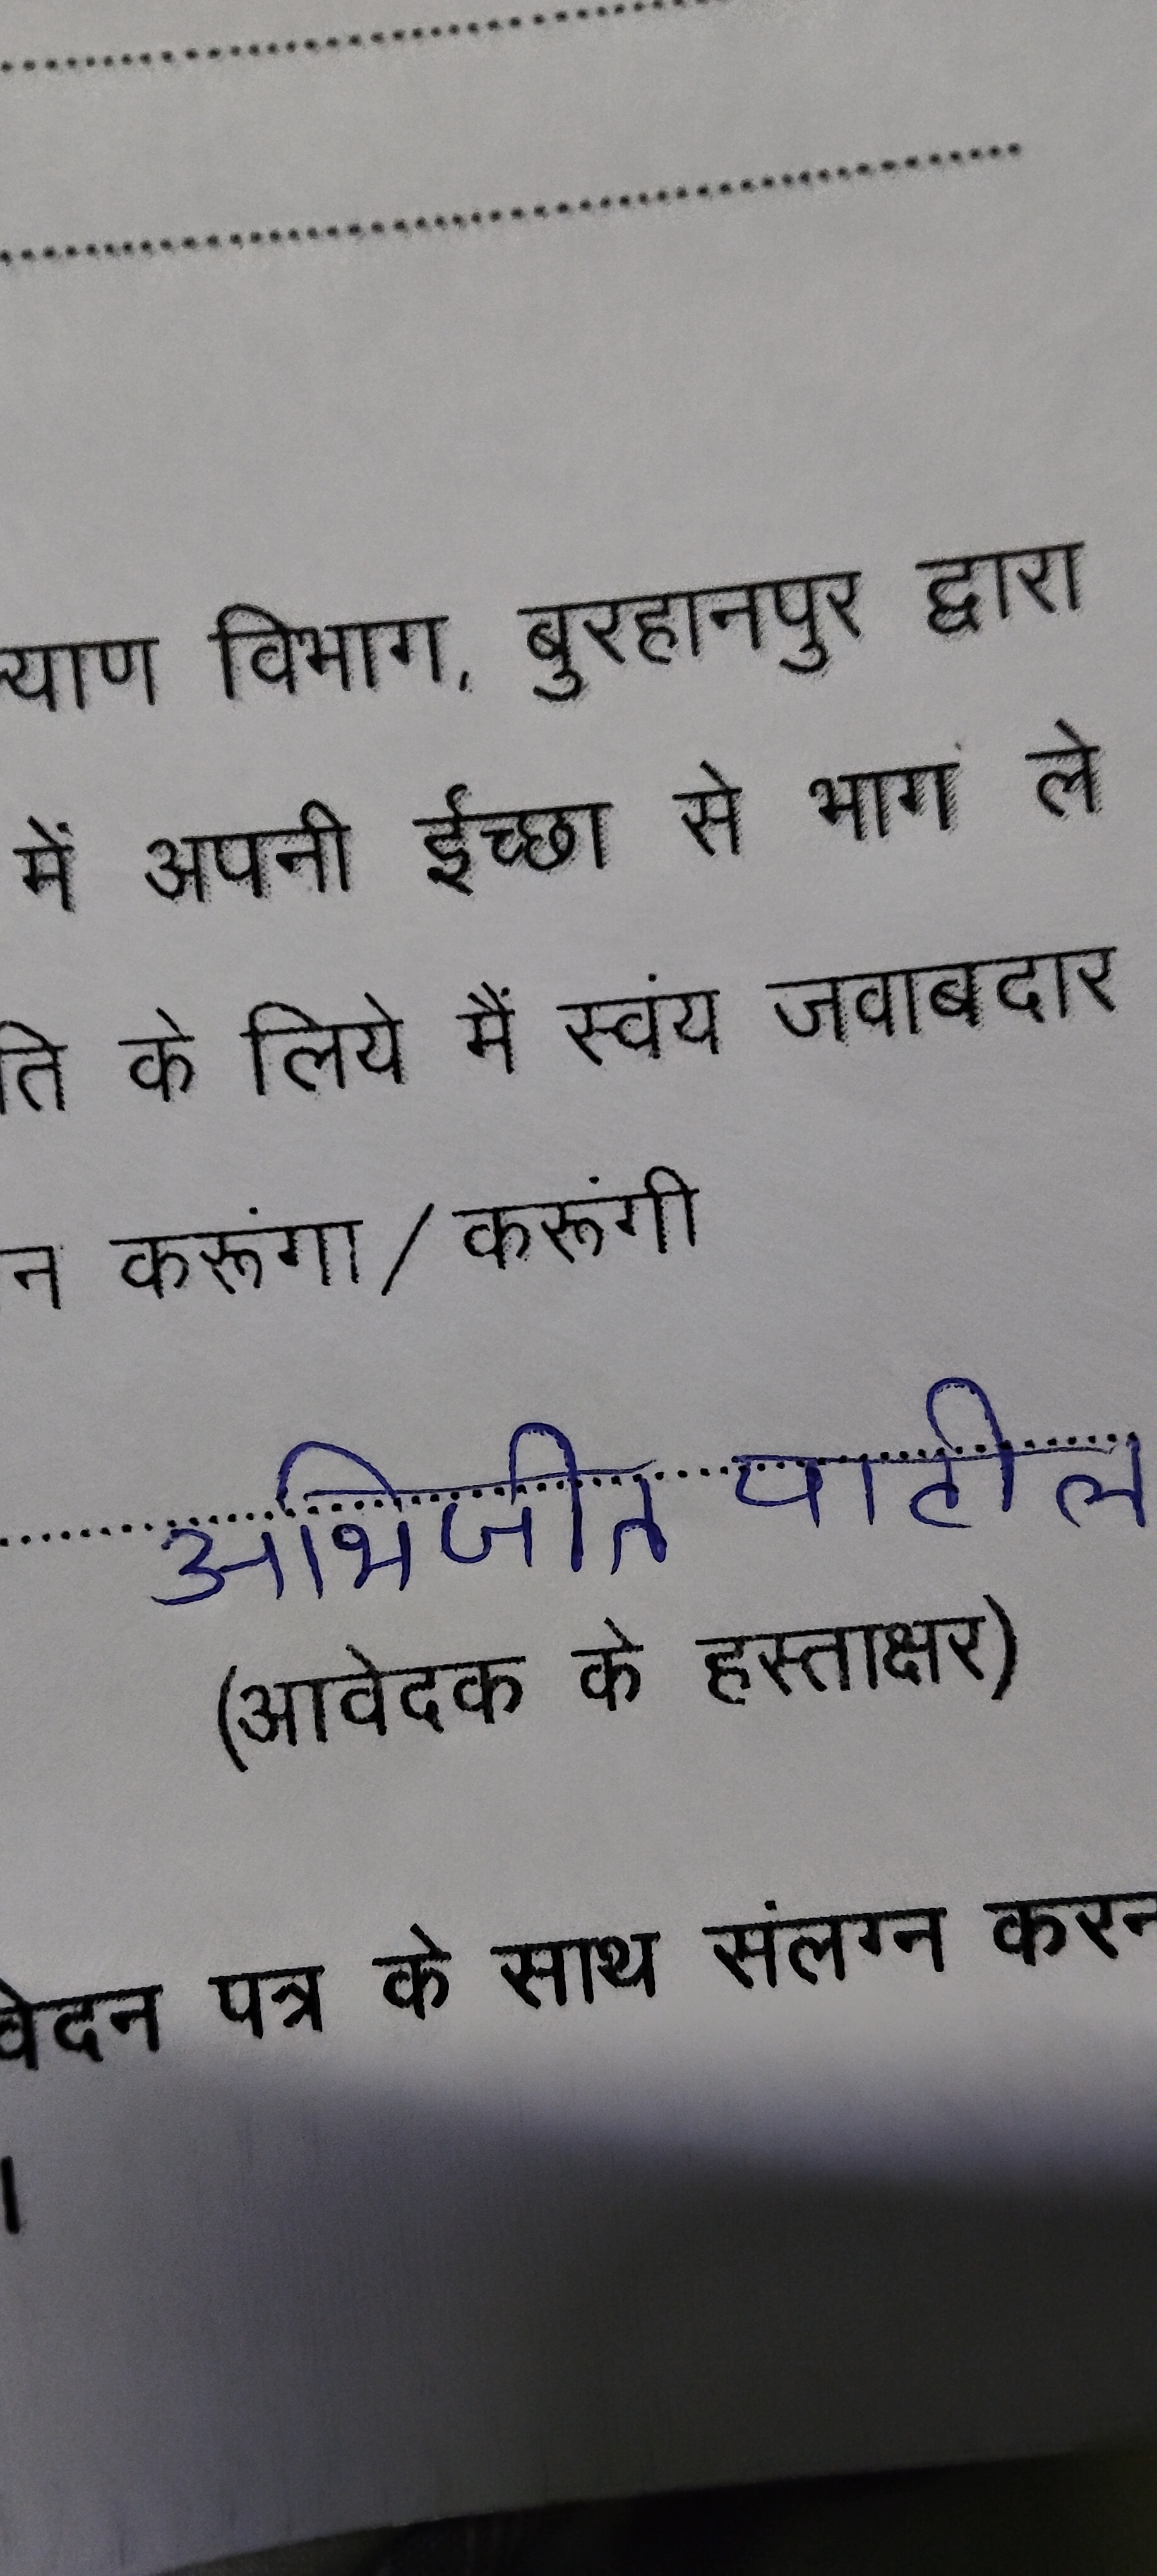 याण विभाग, बुरहानपुर द्वारा
में अपनी ईच्छा से भाग ले
ति के लिये मैं स्वंय जवाबदार
न करूंगा/करूंगी
अभिजीत पाटील
(आवेदक के हस्ताक्षर)
वेदन पत्र के साथ संलग्न करन
।